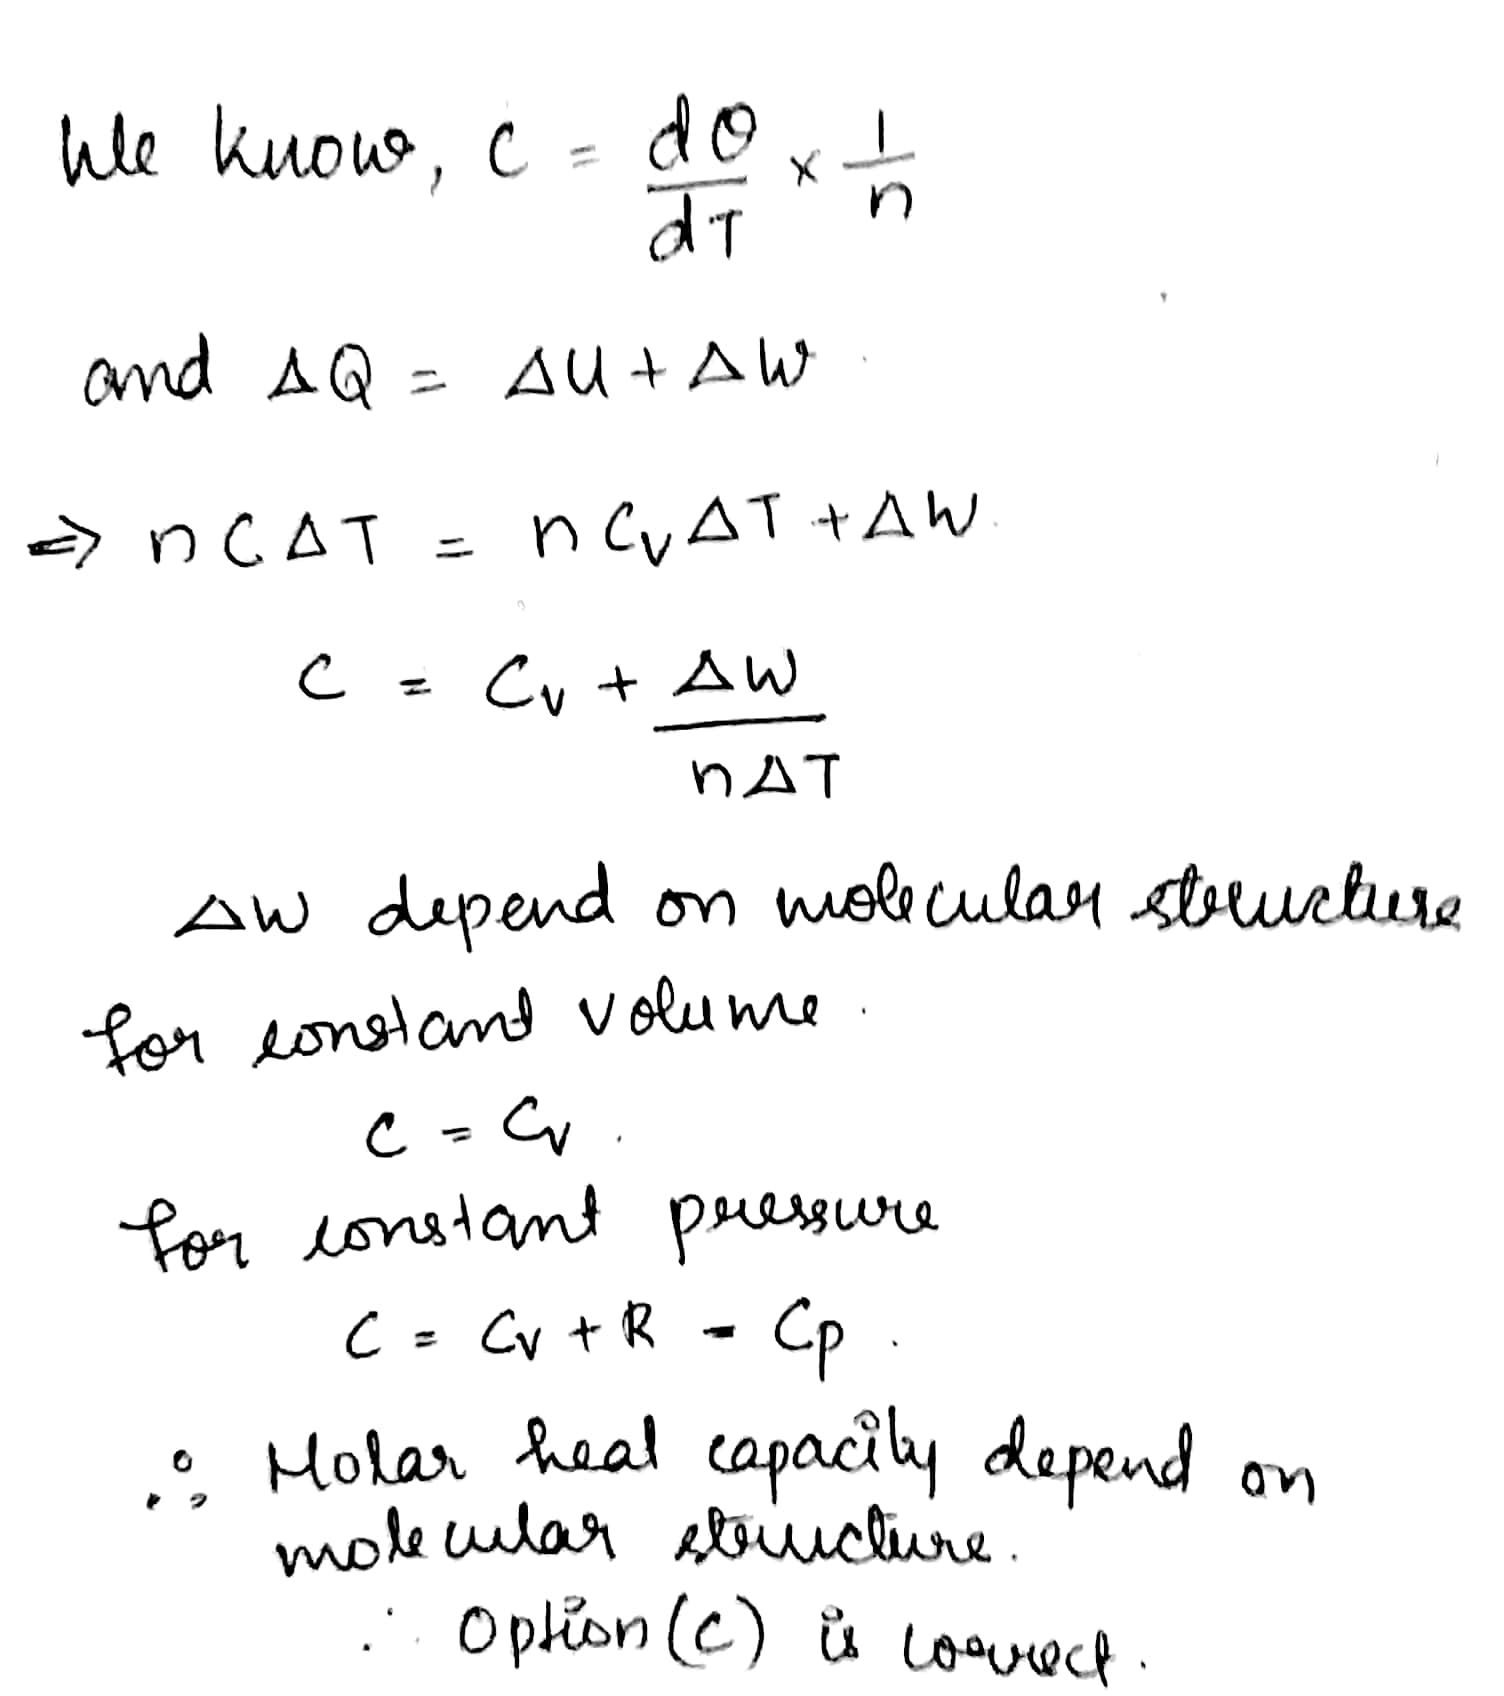 We know, C = dQ/dT × 1/n
and ΔQ = ΔU + ΔW
⇒ nCΔT = nCvΔT + ΔW.
C = Cv + ΔW/nΔT
ΔW depend on molecular structure
for constant volume.
C = Cv.
for constant pressure
C = Cv + R = Cp.
∴ Molar heat capacity depend on
molecular structure.
∴ Option (C) is correct.